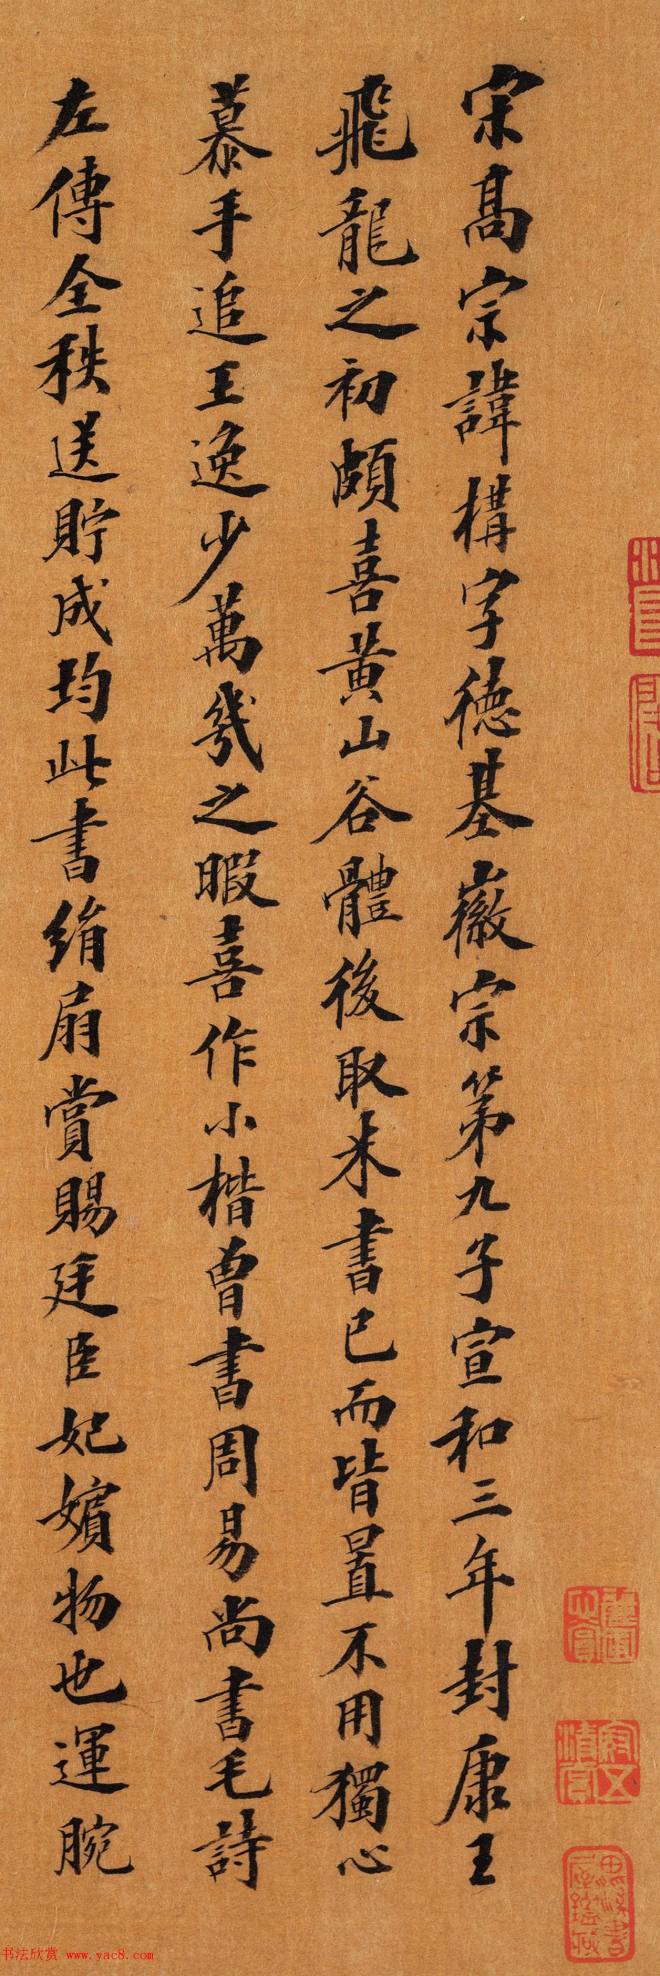 宋高宗諱構字德基徽宗第九子宣和三年封康王
飛龍之初頗喜黃山谷體後取米書已而皆置不用獨心
慕手追王逸少萬幾之暇喜作小楷曾書周易尚書毛詩
左傳全秩送貯成均此書絹扇賞賜廷臣妃嬪物也運腕
书法欣赏 www.yac8.com